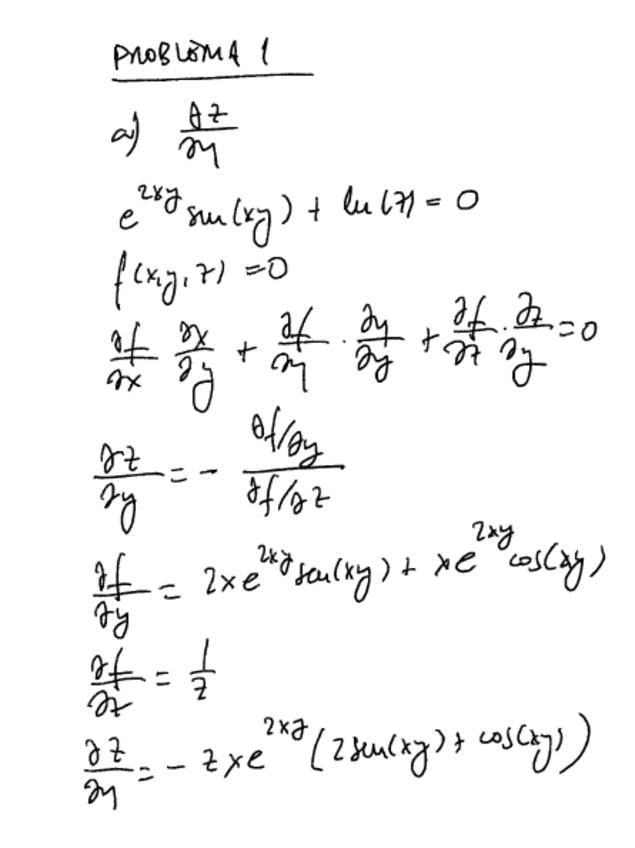 PROBLEMA 1
a) ∂z/∂y
e^{2xy} sen(xy) + ln(z) = 0
f(x,y,z) = 0
∂f/∂x ∂x/∂y + ∂f/∂y · ∂y/∂y + ∂f/∂z · ∂z/∂y = 0
∂z/∂y = - (∂f/∂y)/(∂f/∂z)
∂f/∂y = 2xe^{2xy} sen(xy) + xe^{2xy} cos(xy)
∂f/∂z = 1/z
∂z/∂y = - zxe^{2xy} (2sen(xy) + cos(xy))